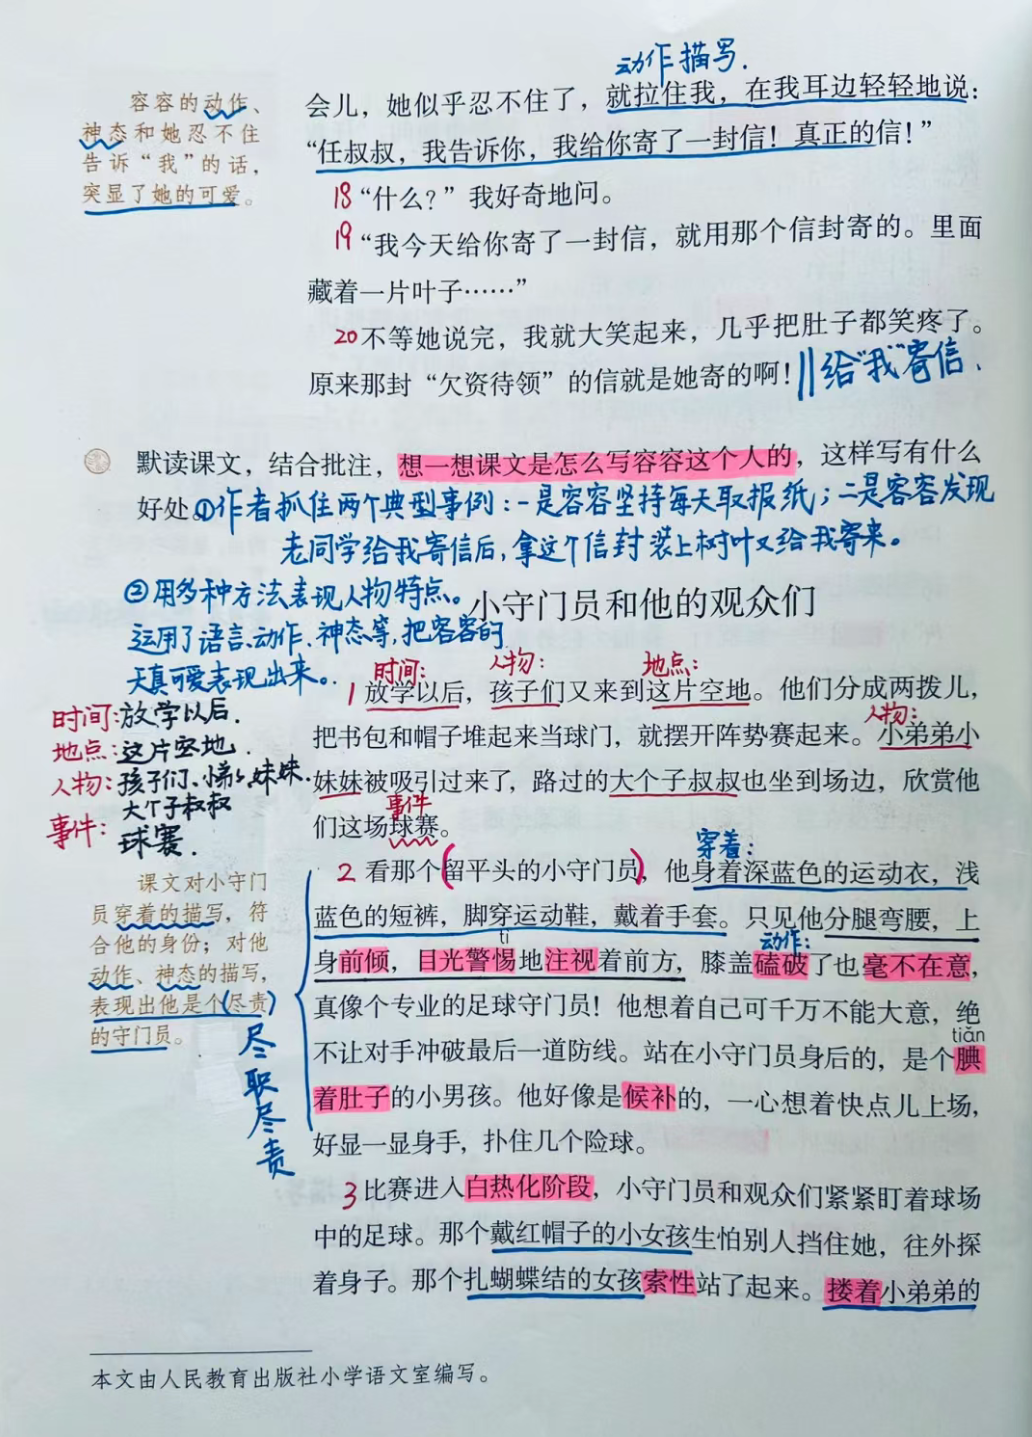 动作描写.
容容的动作、
神态和她忍不住
告诉“我”的话，
突显了她的可爱。
会儿，她似乎忍不住了，就拉住我，在我耳边轻轻地说：
“任叔叔，我告诉你，我给你寄了一封信！真正的信！”
18 “什么？”我好奇地问。
19 “我今天给你寄了一封信，就用那个信封寄的。里面
藏着一片叶子……”
20 不等她说完，我就大笑起来，几乎把肚子都笑疼了。
原来那封“欠资待领”的信就是她寄的啊！ ||给“我”寄信.
默读课文，结合批注，想一想课文是怎么写容容这个人的，这样写有什么
好处。①作者抓住两个典型事例:一是容容坚持每天取报纸;二是容容发现
老同学给我寄信后,拿这个信封装上树叶又给我寄来。
②用多种方法表现人物特点。
小守门员和他的观众们
运用了语言、动作、神态等,把容容的
天真可爱表现出来。
时间: 人物: 地点:
1 放学以后，孩子们又来到这片空地。他们分成两拨儿，
时间:放学以后.
人物:
把书包和帽子堆起来当球门，就摆开阵势赛起来。小弟弟小
地点:这片空地.
妹妹被吸引过来了，路过的大个子叔叔也坐到场边，欣赏他
人物:孩子们、小弟弟、妹妹.
大个子叔叔
事件
们这场球赛。
事件: 球赛.
穿着:
2 看那个(留平头的小守门员)，他身着深蓝色的运动衣，浅
课文对小守门
员穿着的描写，符
合他的身份；对他
动作、神态的描写，
表现出他是个(尽责)
的守门员。
尽职尽责
蓝色的短裤，脚穿运动鞋，戴着手套。只见他分腿弯腰，上
tì
动作:
身前倾，目光警惕地注视着前方，膝盖磕破了也毫不在意，
真像个专业的足球守门员！他想着自己可千万不能大意，绝
tiǎn
不让对手冲破最后一道防线。站在小守门员身后的，是个腆
着肚子的小男孩。他好像是候补的，一心想着快点儿上场，
好显一显身手，扑住几个险球。
3 比赛进入白热化阶段，小守门员和观众们紧紧盯着球场
中的足球。那个戴红帽子的小女孩生怕别人挡住她，往外探
着身子。那个扎蝴蝶结的女孩索性站了起来。搂着小弟弟的
本文由人民教育出版社小学语文室编写。